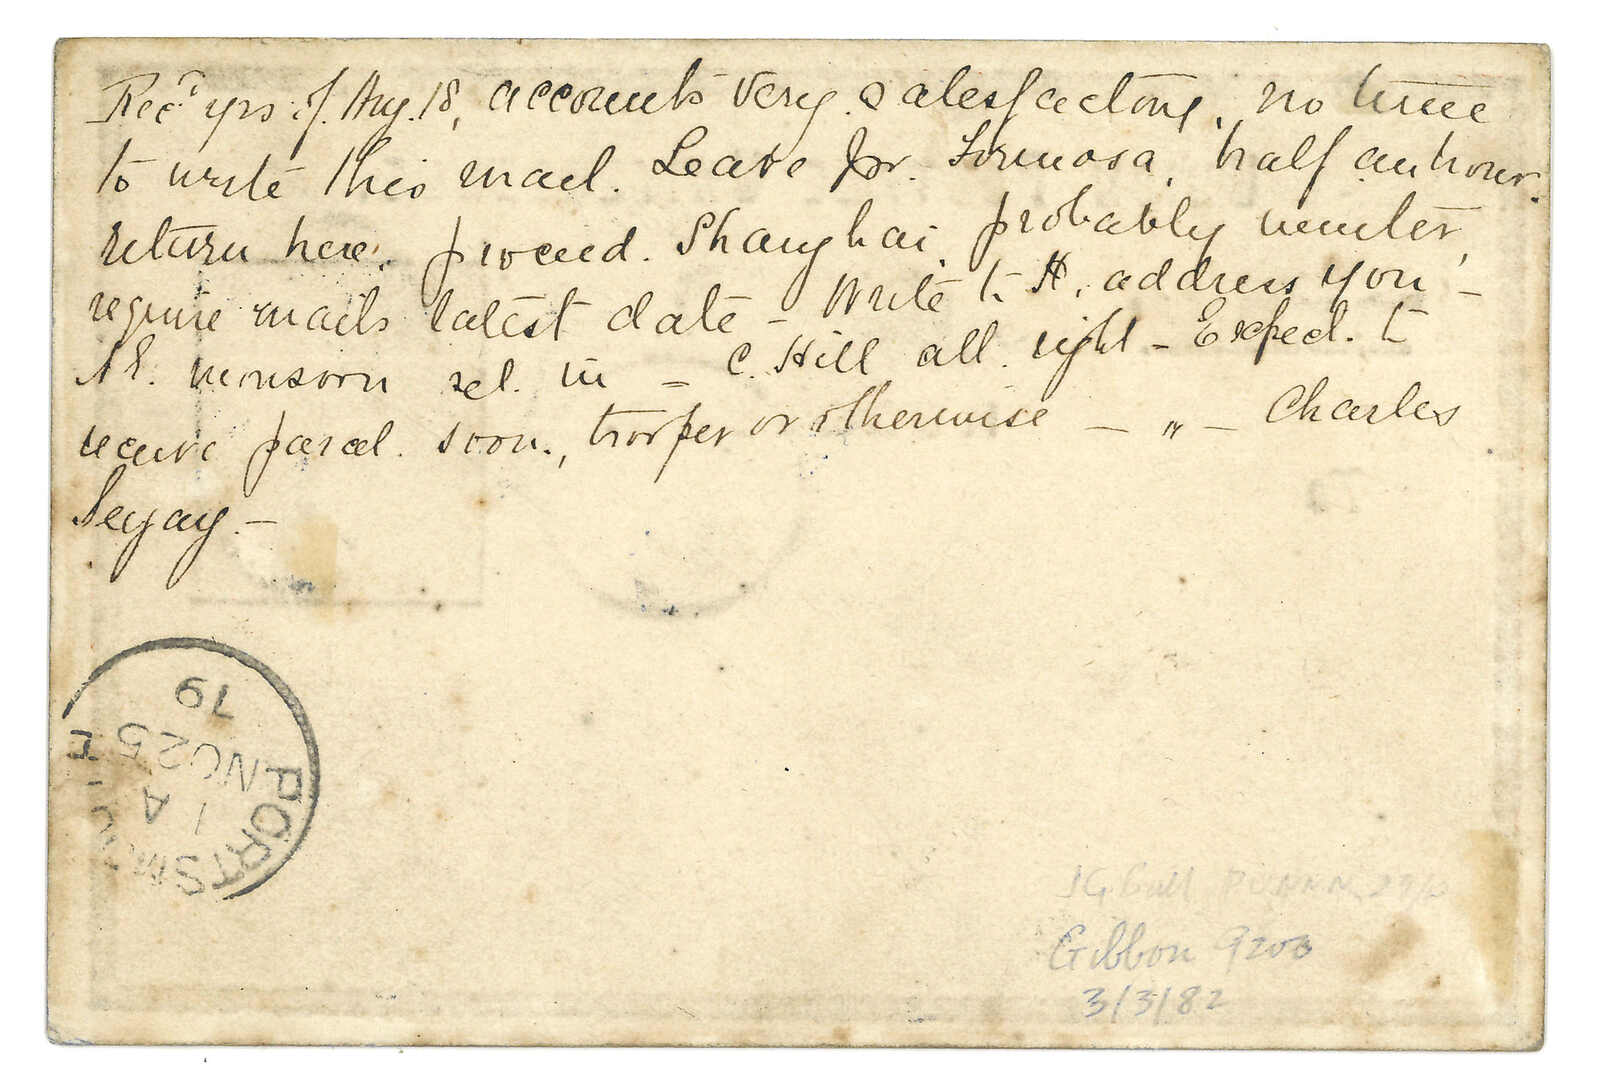 Recd yrs of Aug. 18, accounts very satisfactory, no time
to write this mail. Leave for Formosa, half an hour.
return here. proceed. Shanghai, probably winter,
require mails latest date – Write to H. address you –
N.E. monsoon set in – C. Hill all right – Expect. to
receive parcel. soon., trooper or otherwise – " – Charles
PORTSMOUTH
1 A
NO 25
79
Gibbon 9200
3/3/82